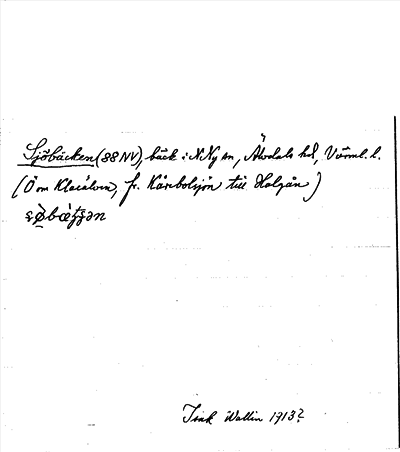 Sjöbäcken (88 NV), bäck i N Ny sn, Älvdals hd, Värml. l.
(Ö om Klarälven, fr. Kårebolsjön till Halgån)
Wallin 1913?